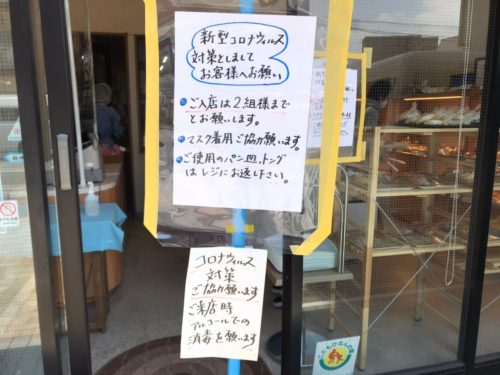 新型コロナウィルス
対策としまして
お客様へお願い
ご入店は2組様まで
とお願いします。
マスク着用ご協力願います。
ご使用のパン皿、トング
はレジにお返し下さい。
コロナウィルス
対策
ご協力願います
ご来店時
アルコールでの
消毒を願います